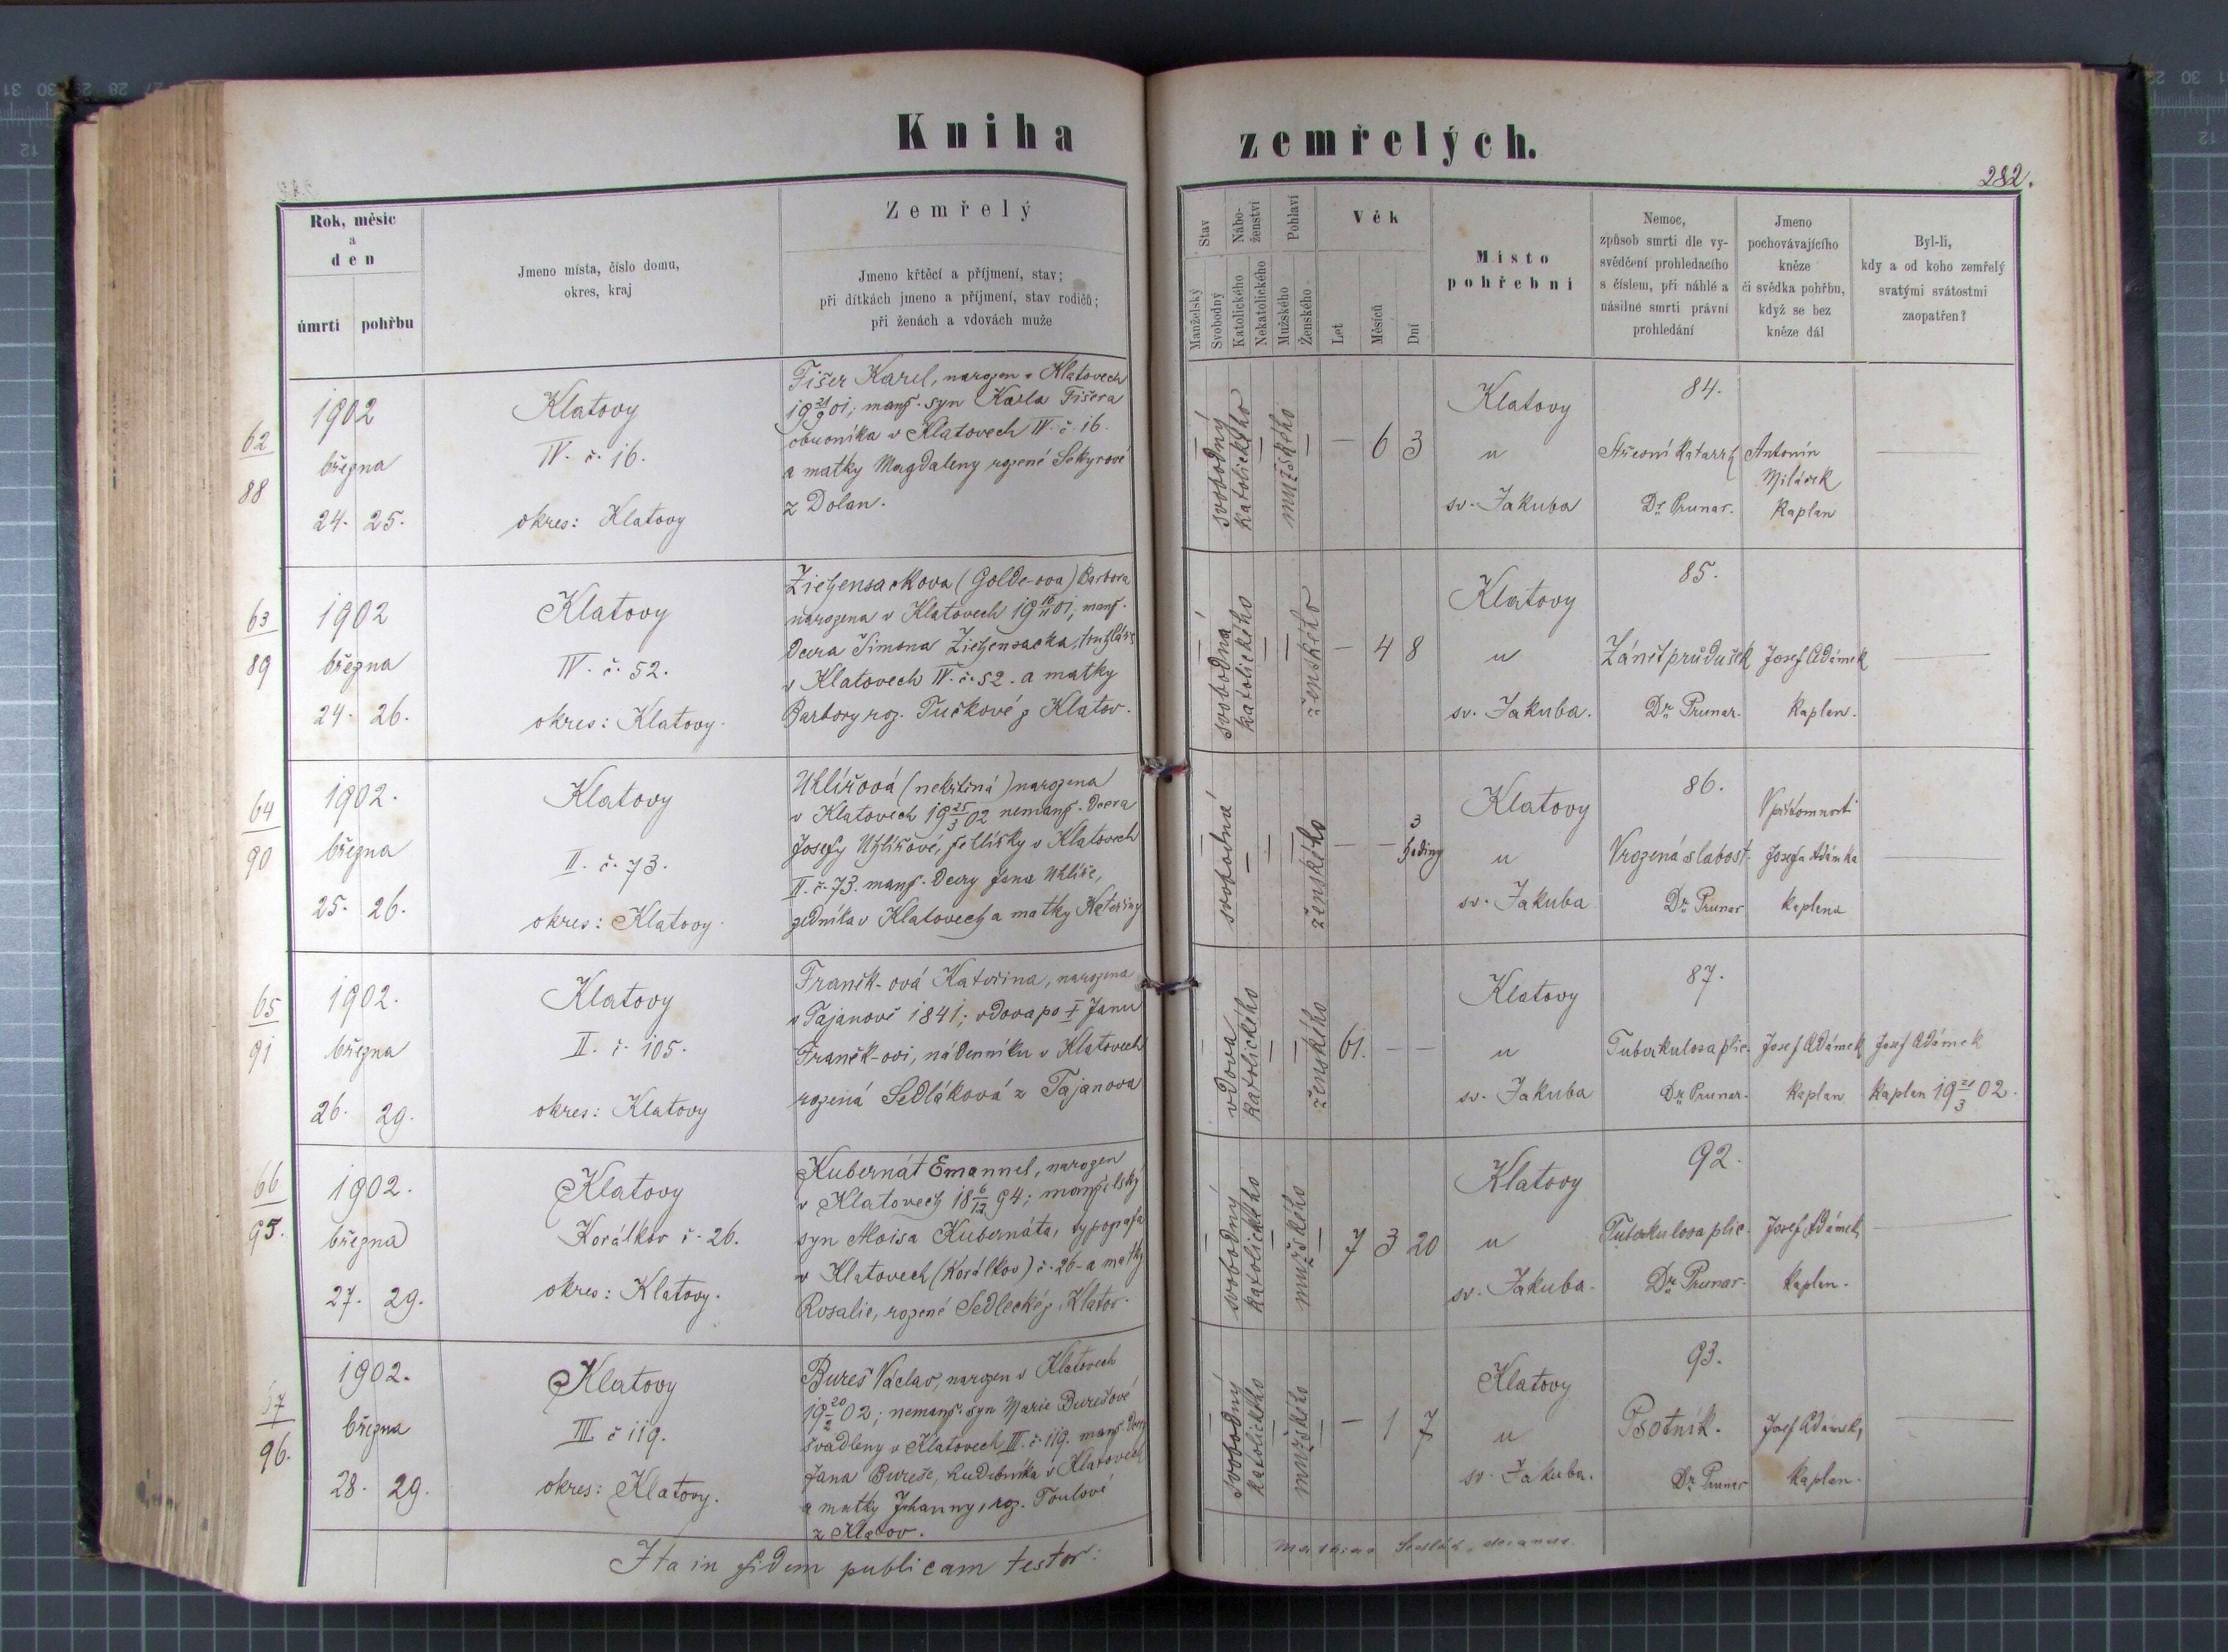 Kniha zemřelých.
282.
Rok, měsíc
a
den
úmrtí
pohřbu
Jmeno místa, číslo domu,
okres, kraj
Zemřelý
Jmeno křtěcí a příjmení, stav;
při dítkách jmeno a příjmení, stav rodičů;
při ženách a vdovách muže
Stav
Manželský
Svobodný
Nábo-
ženství
Katolického
Nekatolického
Pohlaví
Mužského
Ženského
Věk
Let
Měsíců
Dní
Místo
pohřební
Nemoc,
způsob smrti dle vy-
svědčení prohledacího
s číslem, při náhlé a
násilné smrti právní
prohledání
Jmeno
pochovávajícího
kněze
či svědka pohřbu,
když se bez
kněze dál
Byl-li,
kdy a od koho zemřelý
svatými svátostmi
zaopatřen?
62
88
1902
března
24. 25.
Klatovy
IV. č. 16.
okres: Klatovy
Fišer Karel, narozen v Klatovech
19 21/9 01; manž. syn Karla Fišera
obuvníka v Klatovech IV. č. 16.
a matky Magdaleny rozené Sekyrové
z Dolan.
svobodný
katolického
mužského
— 6 3
Klatovy
u
sv. Jakuba
84.
Střevní katarrh
Dr. Prunar.
Antonín
Milásek
kaplan
63
89
1902
března
24. 26.
Klatovy
IV. č. 52.
okres: Klatovy.
Ziehensackova (Golde-ova) Barbora
narozena v Klatovech 19 16/11 01, manž.
dcera Šimona Ziehensacka, truhláře
v Klatovech IV. č. 52. a matky
Barbory roz. Tučkové z Klatov.
svobodna
katolického
ženského
— 4 8
Klatovy
u
sv. Jakuba.
85.
Zánět průdušek
Dr. Prunar.
Josef Adámek
kaplan.
64
90
1902.
března
25. 26.
Klatovy
II. č. 73.
okres: Klatovy.
Uhlířová (nekřtěná) narozena
v Klatovech 19 25/3 02 nemanž. dcera
Josefy Uhlířové, šetlířky v Klatovech
II. č. 73. manž. dcery Jana Uhlíře,
zedníka v Klatovech a matky Kateřiny
svobodná
ženského
— — 3
hodiny
Klatovy
u
sv. Jakuba
86.
Vrozená slabost.
Dr. Prunar
V přítomnosti
Josefa Adámka
kaplana
65
91
1902.
března
26. 29.
Klatovy
II. č. 105.
okres: Klatovy
Franěk-ová Kateřina, narozena
v Tajanově 1841; vdova po † Janu
Franěk-ovi, nádenníku v Klatovech
rozená Sedláková z Tajanova
vdova
katolického
ženského
61. — —
Klatovy
u
sv. Jakuba
87.
Tuberkulosa plic.
Dr. Prunar.
Josef Adámek
kaplan
Josef Adámek
kaplan 19 21/3 02.
66
95.
1902.
března
27. 29.
Klatovy
Korálkov č. 26.
okres: Klatovy.
Kubernát Emannel, narozen
v Klatovech 18 6/12 94; manželský
syn Aloisa Kubernáta, typografa
v Klatovech (Korálkov) č. 26. a matky
Rosalie, rozené Sedlecké z Klatov.
svobodný
katolického
mužského
7 3 20
Klatovy
u
sv. Jakuba.
92.
Tuberkulosa plic.
Dr. Prunar.
Josef Adámek
kaplan.
67
96.
1902.
března
28. 29.
Klatovy
III. č 119.
okres: Klatovy.
Bureš Václav, narozen v Klatovech
19 20/2 02; nemanž. syn Marie Burešové
švadleny v Klatovech III. č. 119. manž. dcery
Jana Bureše, hudebníka v Klatovech
a matky Johanny, roz. Toulové
z Klatov.
svobodný
katolického
mužského
— 1 7
Klatovy
u
sv. Jakuba.
93.
Psotník.
Dr. Prunar
Josef Adámek,
kaplan.
Ita in fidem publicam testor:
Mathias Sedlák, decanus.